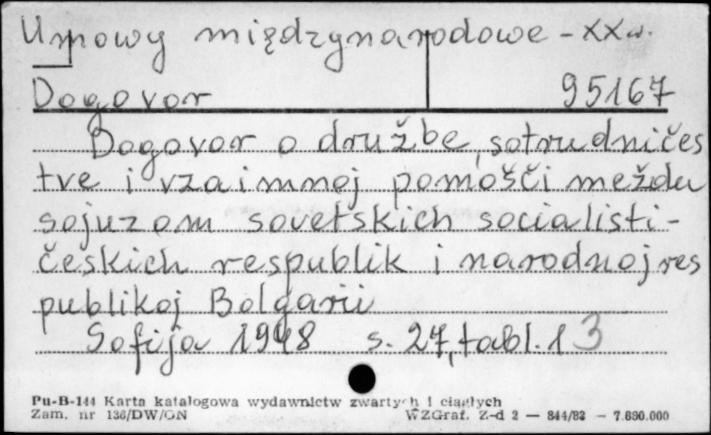 Umowy międzynarodowe - XX w.
Dogovor 95167
Dogovor o družbe, sotrudničes
tve i vzaimnoj pomošči meždu
sojuzom sovetskich socialisti-
českich respublik i narodnoj res
publikoj Bolgarii
Sofija 1948 s. 27, tabl. 1 3
Pu-B-144 Karta katalogowa wydawnictw zwartych i ciągłych
Zam. nr 136/DW/ON WZGraf. Z-d 2 — 844/82 — 7.690.000